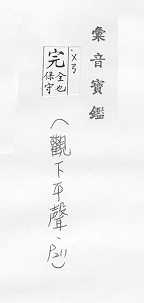 彙音寶鑑
ㄨㄢ
完
全也
保守
(觀下平聲、P211)